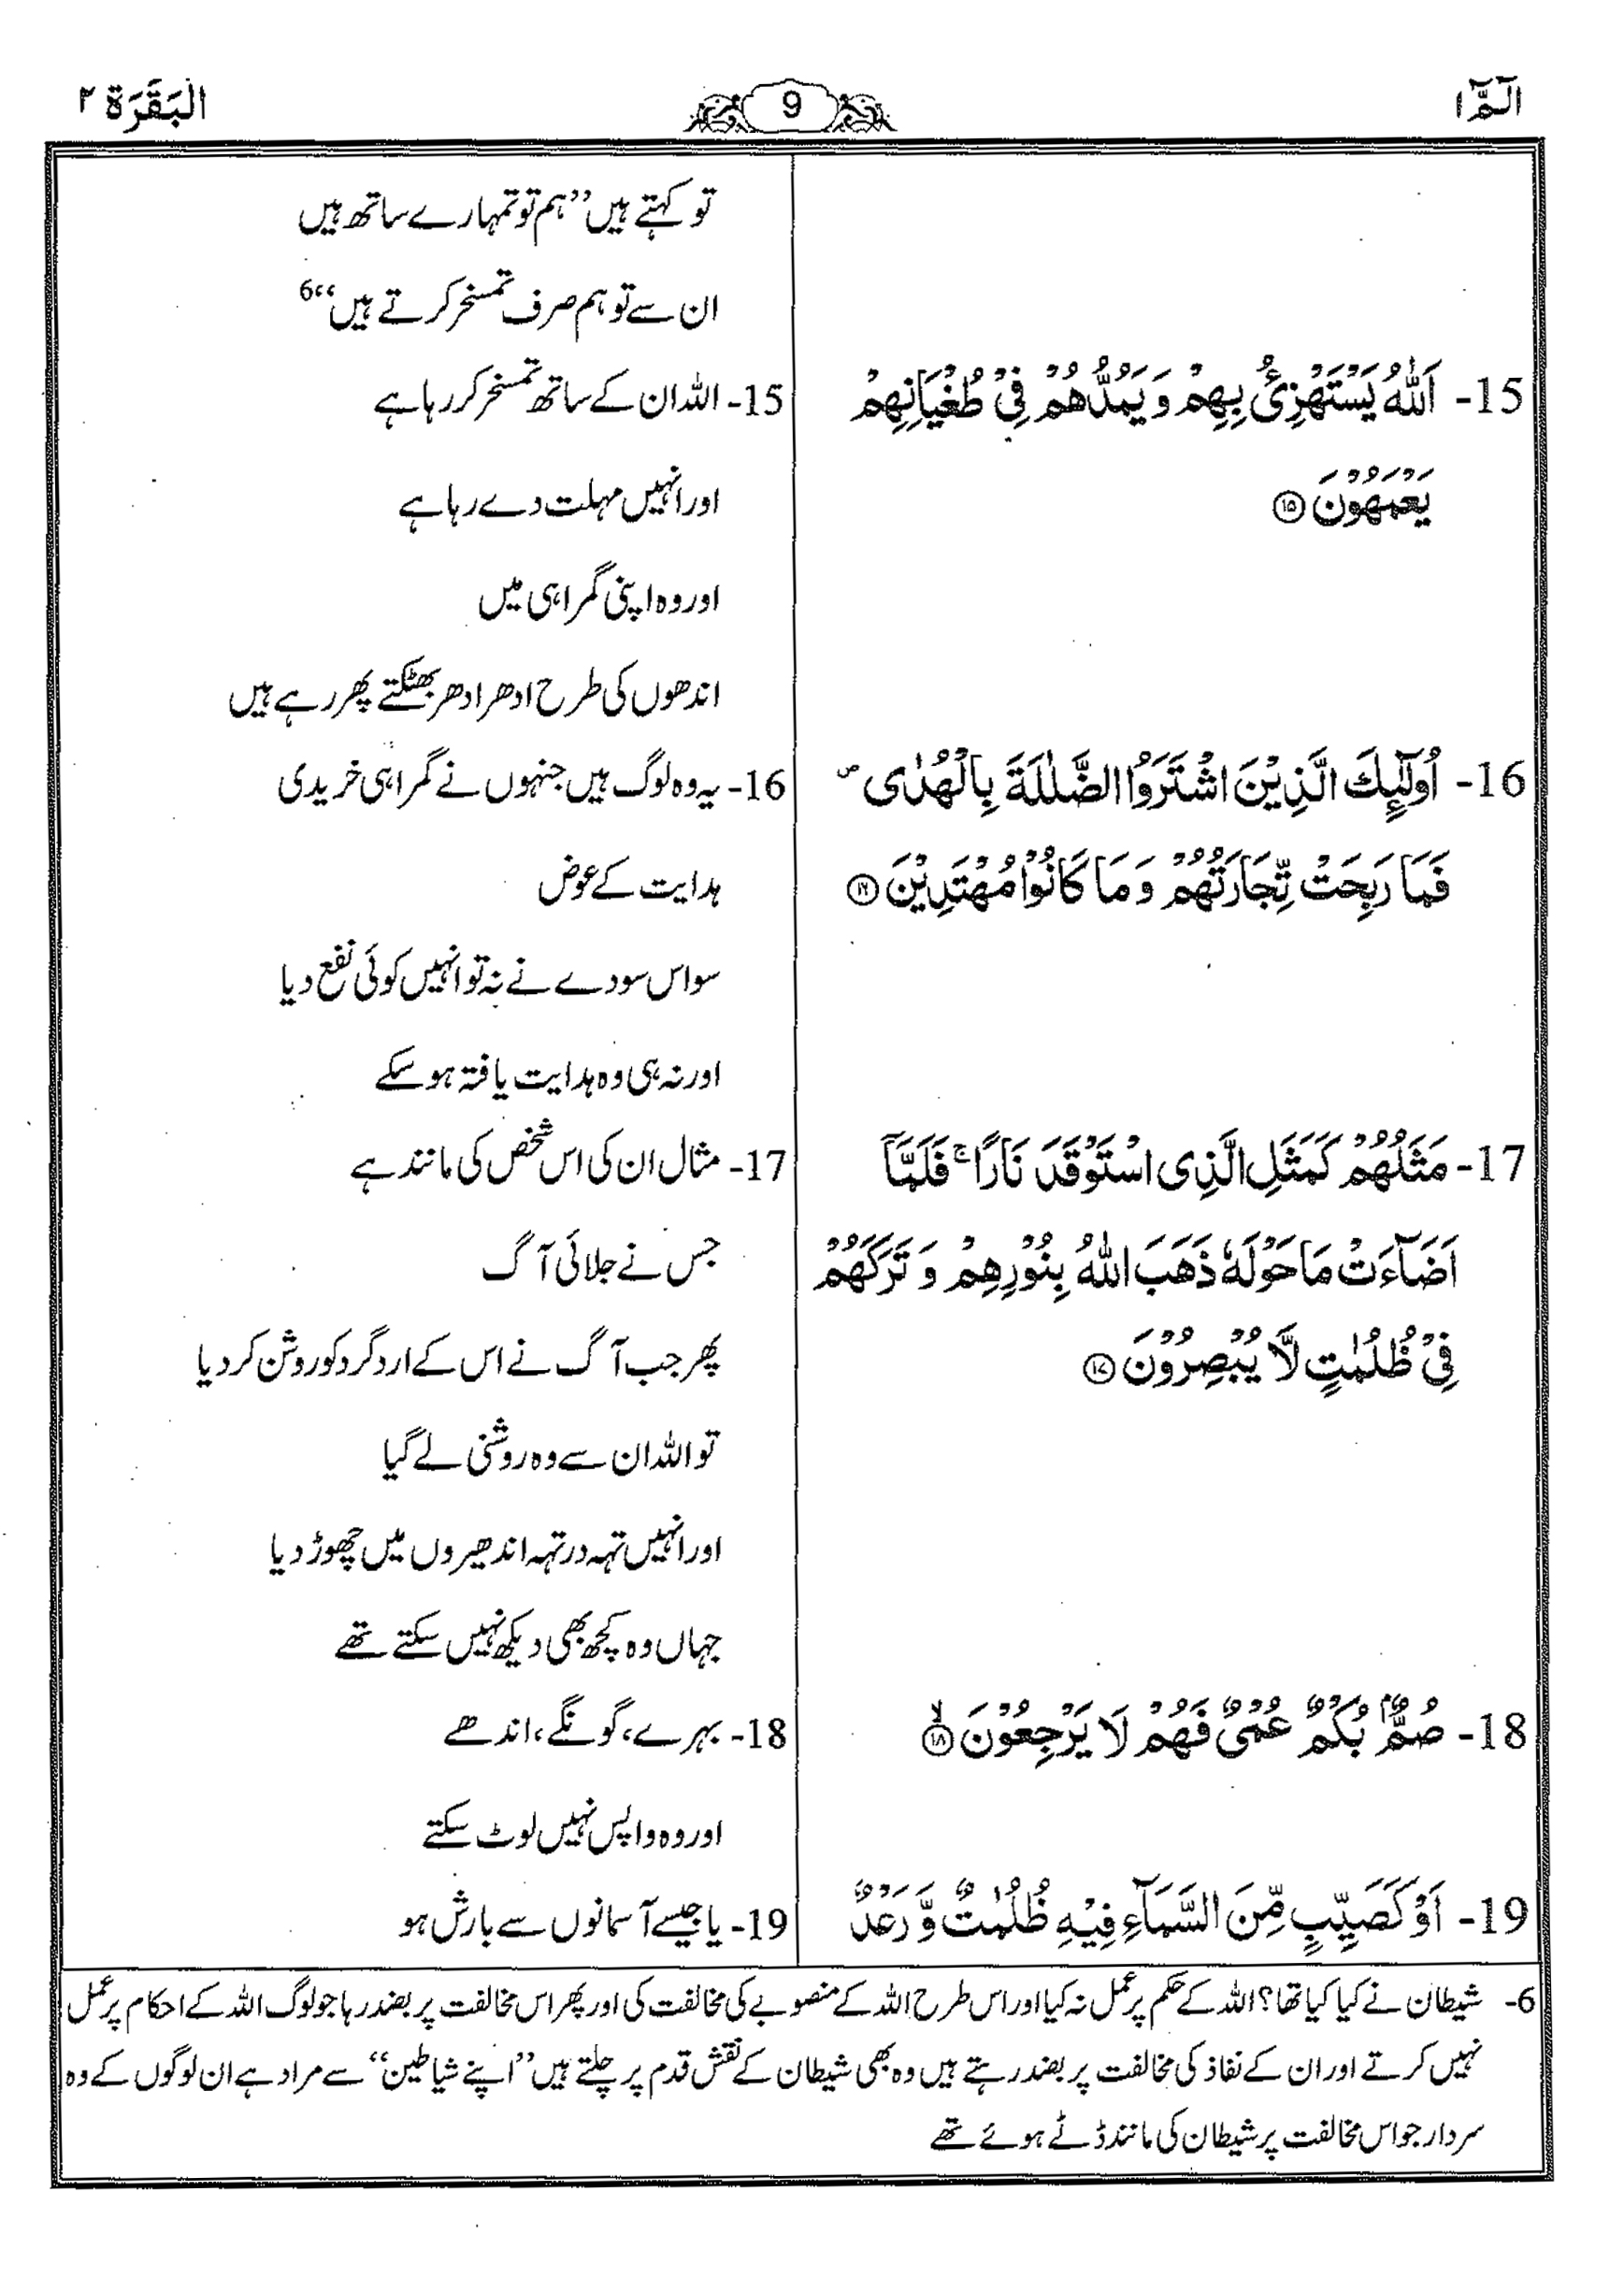 الٓمّٓ ١
9
البَقَرَة ٢
تو کہتے ہیں ”ہم تو تمہارے ساتھ ہیں
ان سے تو ہم صرف تمسخر کرتے ہیں“6
15- اَللّٰهُ يَسْتَهْزِئُ بِهِمْ وَ يَمُدُّهُمْ فِيْ طُغْيَانِهِمْ
يَعْمَهُوْنَ ⑮
15- اللہ ان کے ساتھ تمسخر کر رہا ہے
اور انہیں مہلت دے رہا ہے
اور وہ اپنی گمراہی میں
اندھوں کی طرح ادھر ادھر بھٹکتے پھر رہے ہیں
16- اُولٰٓئِكَ الَّذِيْنَ اشْتَرَوُا الضَّلٰلَةَ بِالْهُدٰى ۖ
فَمَا رَبِحَتْ تِّجَارَتُهُمْ وَ مَا كَانُوْا مُهْتَدِيْنَ ⑯
16- یہ وہ لوگ ہیں جنہوں نے گمراہی خریدی
ہدایت کے عوض
سو اس سودے نے نہ تو انہیں کوئی نفع دیا
اور نہ ہی وہ ہدایت یافتہ ہو سکے
17- مَثَلُهُمْ كَمَثَلِ الَّذِى اسْتَوْقَدَ نَارًا ۚ فَلَمَّآ
اَضَآءَتْ مَا حَوْلَهٗ ذَهَبَ اللّٰهُ بِنُوْرِهِمْ وَ تَرَكَهُمْ
فِيْ ظُلُمٰتٍ لَّا يُبْصِرُوْنَ ⑰
17- مثال ان کی اس شخص کی مانند ہے
جس نے جلائی آگ
پھر جب آگ نے اس کے ارد گرد کو روشن کر دیا
تو اللہ ان سے وہ روشنی لے گیا
اور انہیں تہہ در تہہ اندھیروں میں چھوڑ دیا
جہاں وہ کچھ بھی دیکھ نہیں سکتے تھے
18- صُمٌّۢ بُكْمٌ عُمْيٌ فَهُمْ لَا يَرْجِعُوْنَ ۙ⑱
18- بہرے، گونگے، اندھے
اور وہ واپس نہیں لوٹ سکتے
19- اَوْ كَصَيِّبٍ مِّنَ السَّمَآءِ فِيْهِ ظُلُمٰتٌ وَّ رَعْدٌ
19- یا جیسے آسمانوں سے بارش ہو
6- شیطان نے کیا کیا تھا؟ اللہ کے حکم پر عمل نہ کیا اور اس طرح اللہ کے منصوبے کی مخالفت کی اور پھر اس مخالفت پر بضد رہا جو لوگ اللہ کے احکام پر عمل
نہیں کرتے اور ان کے نفاذ کی مخالفت پر بضد رہتے ہیں وہ بھی شیطان کے نقش قدم پر چلتے ہیں ”اپنے شیاطین“ سے مراد ہے ان لوگوں کے وہ
سردار جو اس مخالفت پر شیطان کی مانند ڈٹے ہوئے تھے